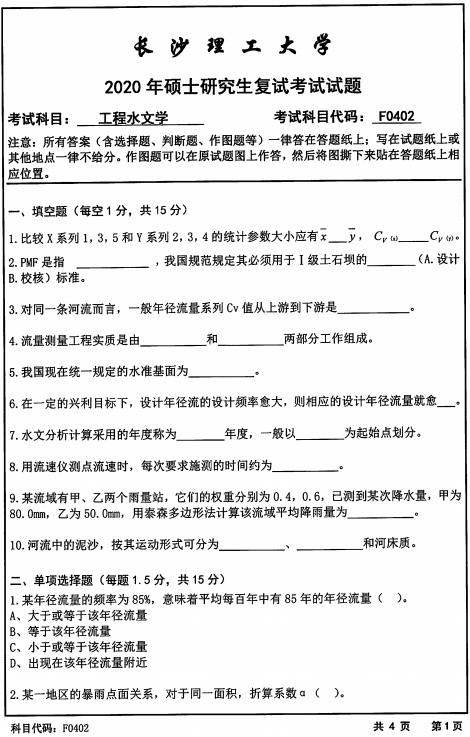 长沙理工大学
2020 年硕士研究生复试考试试题
考试科目： 工程水文学 考试科目代码： F0402
注意：所有答案（含选择题、判断题、作图题等）一律答在答题纸上；写在试题纸上或
其他地点一律不给分。作图题可以在原试题图上作答，然后将图撕下来贴在答题纸上相
应位置。
一、填空题（每空1分，共15分）
1.比较X系列1,3,5和Y系列2,3,4的统计参数大小应有x̄____ȳ， Cv(x)_____Cv(y)。
2.PMF是指 __________ ，我国规范规定其必须用于Ⅰ级土石坝的_______（A.设计
B.校核）标准。
3.对同一条河流而言，一般年径流量系列Cv值从上游到下游是__________。
4.流量测量工程实质是由_________和_________两部分工作组成。
5.我国现在统一规定的水准基面为_________。
6.在一定的兴利目标下，设计年径流的设计频率愈大，则相应的设计年径流量就愈___。
7.水文分析计算采用的年度称为_______年度，一般以_______为起始点划分。
8.用流速仪测点流速时，每次要求施测的时间约为__________。
9.某流域有甲、乙两个雨量站，它们的权重分别为0.4，0.6，已测到某次降水量，甲为
80.0mm，乙为50.0mm，用泰森多边形法计算该流域平均降雨量为__________。
10.河流中的泥沙，按其运动形式可分为_________、_________和河床质。
二、单项选择题（每题1.5分，共15分）
1.某年径流量的频率为85%，意味着平均每百年中有85年的年径流量（ ）。
A、大于或等于该年径流量
B、等于该年径流量
C、小于或等于该年径流量
D、出现在该年径流量附近
2.某一地区的暴雨点面关系，对于同一面积，折算系数α（ ）。
科目代码：F0402 共 4 页 第1页